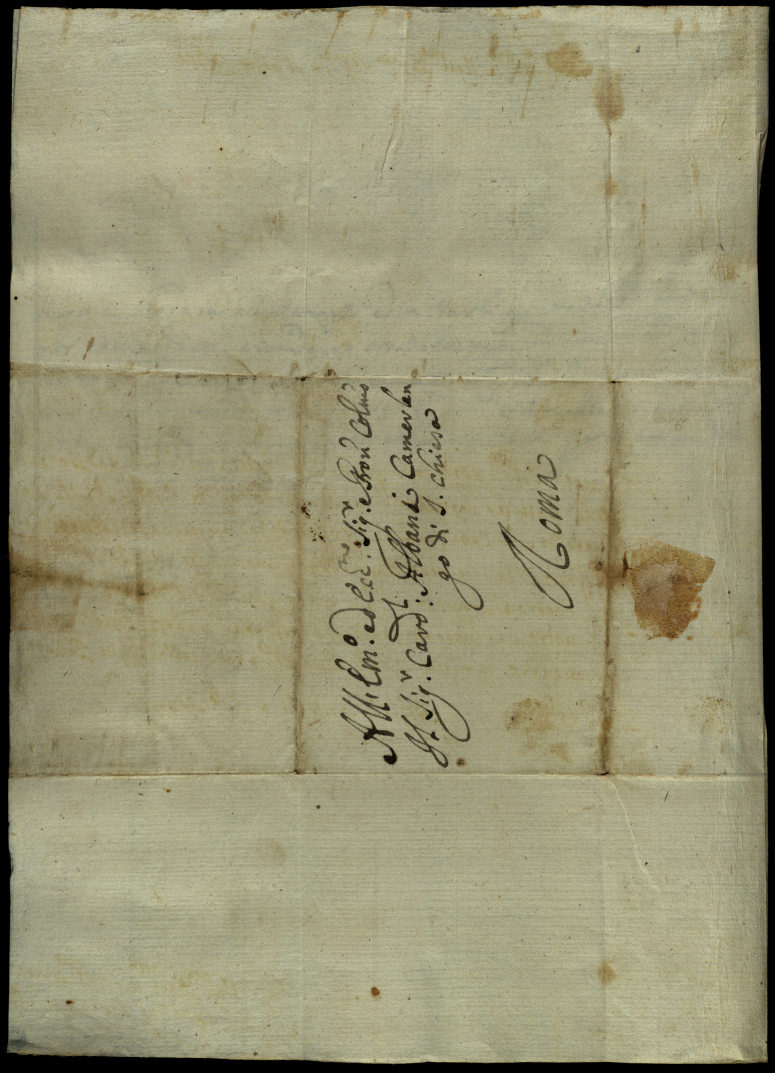 All'Em.º ed Ecc.mo Sig.r e Pron Colmo
Il Sig.r Card.l: Albani Camerlen
go di S. Chiesa
Roma